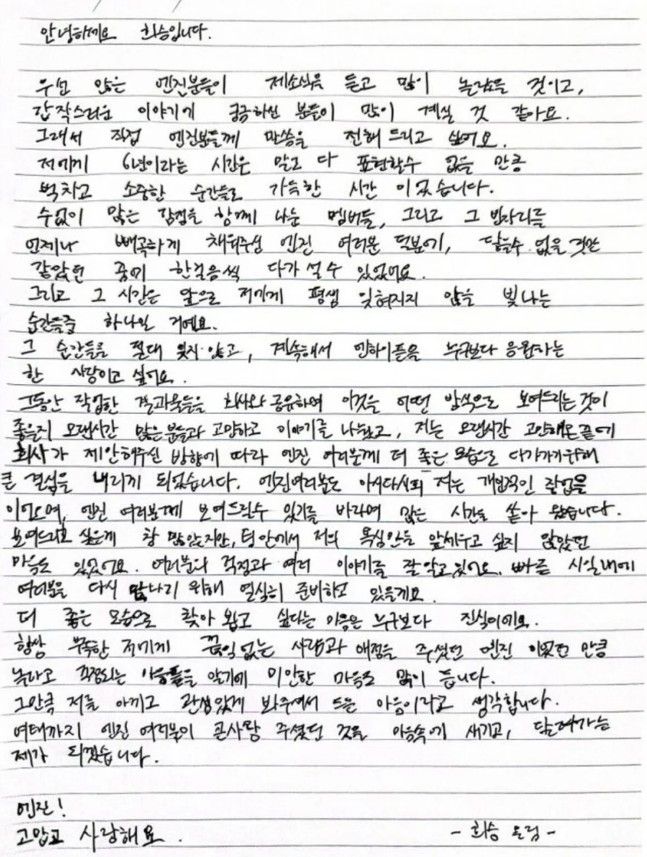 안녕하세요 희승입니다.
우선 많은 엔진분들이 제소식을 듣고 많이 놀랐을 것이고,
갑작스러운 이야기에 궁금하실 분들이 많이 계실 것 같아요.
그래서 직접 엔진분들께 말씀을 전해 드리고 싶어요.
저에게 6년이라는 시간은 말로 다 표현할수 없을 만큼
벅차고 소중한 순간들로 가득한 시간 이었습니다.
수없이 많은 감정을 함께 나눈 멤버들, 그리고 그 빈자리를
언제나 빼곡하게 채워주신 엔진 여러분 덕분에, 닿을수 없을 것만
같았던 꿈에 한걸음씩 다가 설 수 있었어요.
그리고 그 시간은 앞으로 저에게 평생 잊혀지지 않을 빛나는
순간들중 하나일 거예요.
그 순간들을 절대 잊지 않고, 계속해서 엔하이픈을 누구보다 응원하는
한 사람이고 싶어요.
그동안 작업한 결과물들을 회사와 공유하며 이것을 어떤 방식으로 보여드리는것이
좋을지 오랜시간 많은 분들과 고민하고 이야기를 나눴고, 저는 오랜시간 고민해온끝에
회사가 제안해주신 방향에 따라 엔진 여러분께 더 좋은 모습으로 다가가기위해
큰 결심을 내리게 되었습니다. 엔진여러분도 아시다시피 저는 개인적인 작업을
이어오며, 엔진 여러분께 보여드릴수 있기를 바라며 많은 시간을 쏟아 왔습니다.
보여드리고 싶은게 참 많았지만, 팀 안에서 저의 욕심만을 앞세우고 싶지 않았던
마음도 있었어요. 여러분의 걱정과 여러 이야기를 잘 알고 있어요. 빠른 시일내에
여러분을 다시 만나기 위해 열심히 준비하고 있을게요.
더 좋은 모습으로 찾아 뵙고 싶다는 마음은 누구보다 진심이에요.
항상 부족한 저에게 끊임없는 사랑과 애정을 주셨던 엔진 이었던 만큼
놀라고 걱정되는 마음들을 알기에 미안한 마음도 많이 듭니다.
그만큼 저를 아끼고 관심있게 봐주셔서 드는 마음이라고 생각합니다.
여태까지 엔진 여러분이 큰사랑 주셨던 것을 마음속에 새기고, 달려가는
제가 되겠습니다.
엔진!
고맙고 사랑해요.
- 희승 올림 -